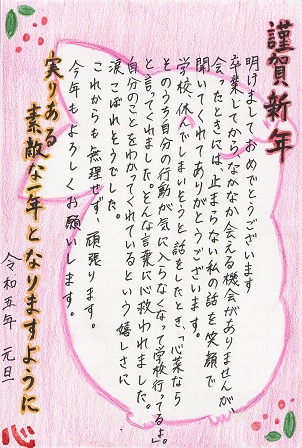 謹賀新年
明けましておめでとうございます
卒業してからなかなか会える機会がありませんが、
会ったときには止まらない私の話を笑顔で
聞いてくれてありがとうございます。
学校、休んでしまいそうと話をしたとき、「心菜なら
そのうち自分の行動が気に入らなくなって学校行ってるよ。」
と言ってくれました。そんな言葉に心救われました。
自分のことをわかってくれているという嬉しさに
涙こぼれそうでした。
これからも無理せず頑張ります。
今年もよろしくお願いします。
実りある
素敵な一年となりますように
令和五年 元旦
心